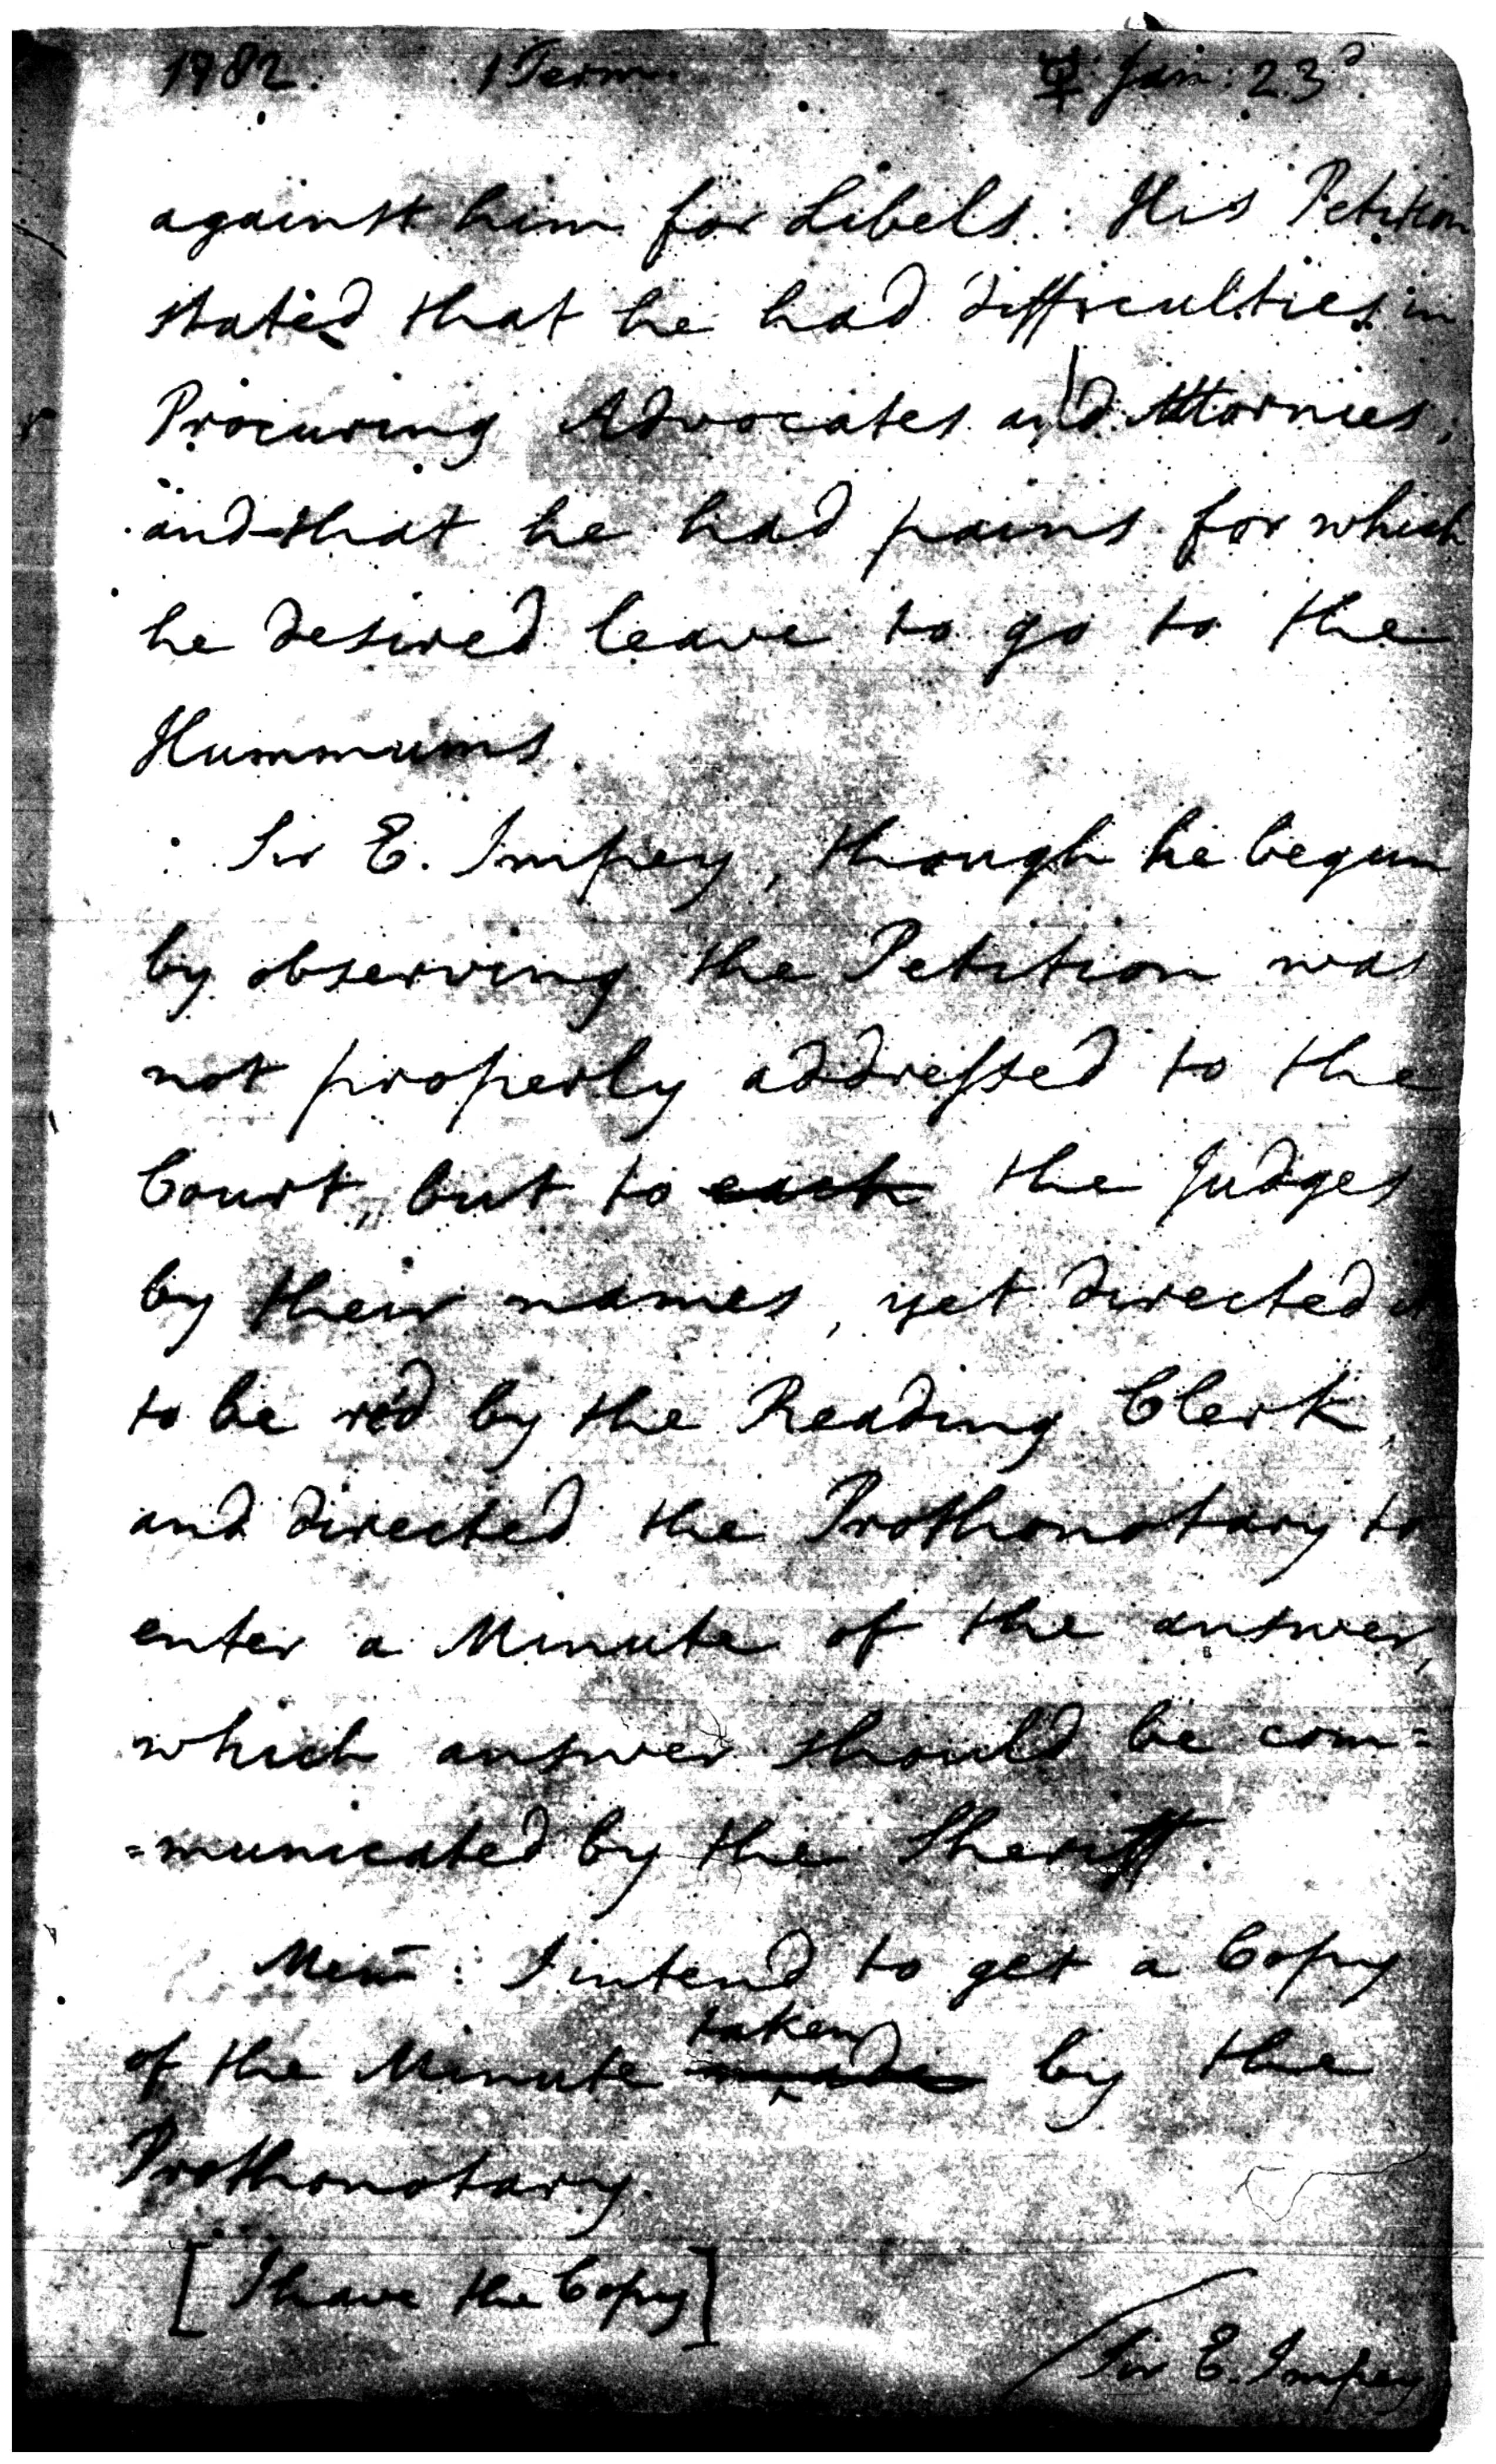 1782. 1 Term. ☿ Jan: 23d.
against him for Libels. His Petition
stated that he had difficulties in
Procuring Advocates and Attornies;
and that he had pains for which
he desired leave to go to the
Hummums.
Sir E. Impey, though he begun
by observing the Petition was
not properly addressed to the
Court, but to each the Judges
by their names, yet directed it
to be re'd by the Reading Clerk,
and directed the Prothonotary to
enter a Minute of the answer,
which answer should be com=
=municated by the Sheriff.
Mem: I intend to get a Copy
taken
of the Minute made by the
Prothonotary.
[I have the Copy]
/Sir E. Impey